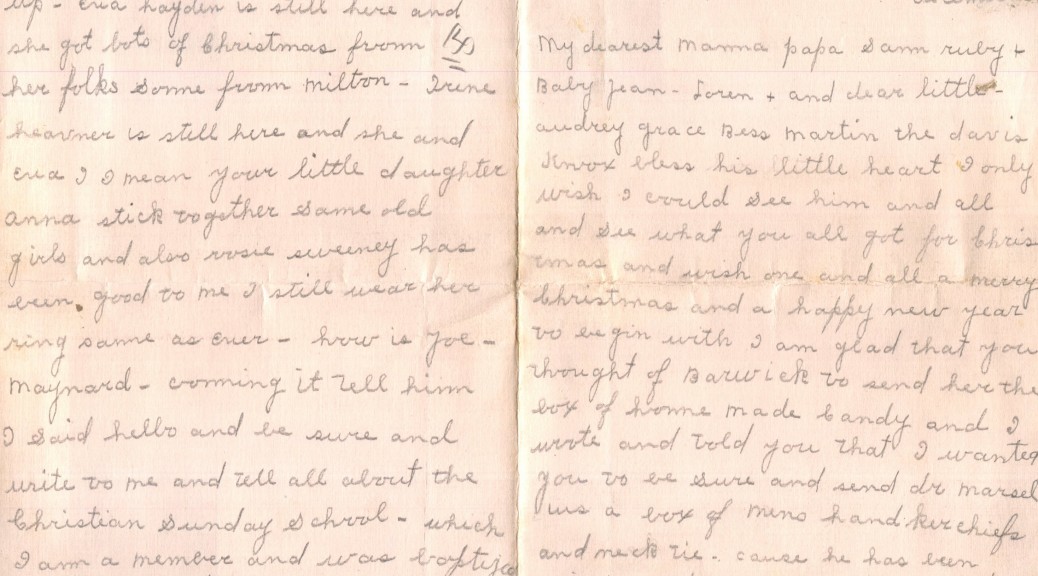 up - eva hayden is still here and
she got lots of Christmas from
14
her folks some from milton - Irene
heavner is still here and she and
eva I I mean your little daughter
anna stick together same old
girls and also rosie sweeney has
been good to me I still wear her
ring same as ever - how is Joe -
maynard - comming it tell him
I said hello and be sure and
write to me and tell all about the
Christian Sunday School - which
I am a member and was baptized
My dearest mamma papa Sam ruby +
Baby Jean - Loren + and dear little -
audrey grace Bess martin the davis
Knox bless his little heart I only
wish I could see him and all
and see what you all got for Chris
tmas and wish one and all a merry
Christmas and a happy new year
to begin with I am glad that you
thought of Barwick to send her the
box of home made Candy and I
wrote and told you that I wanted
you to be sure and send dr marsel
lus a box of mens hand kerchiefs
and neck tie - cause he has been